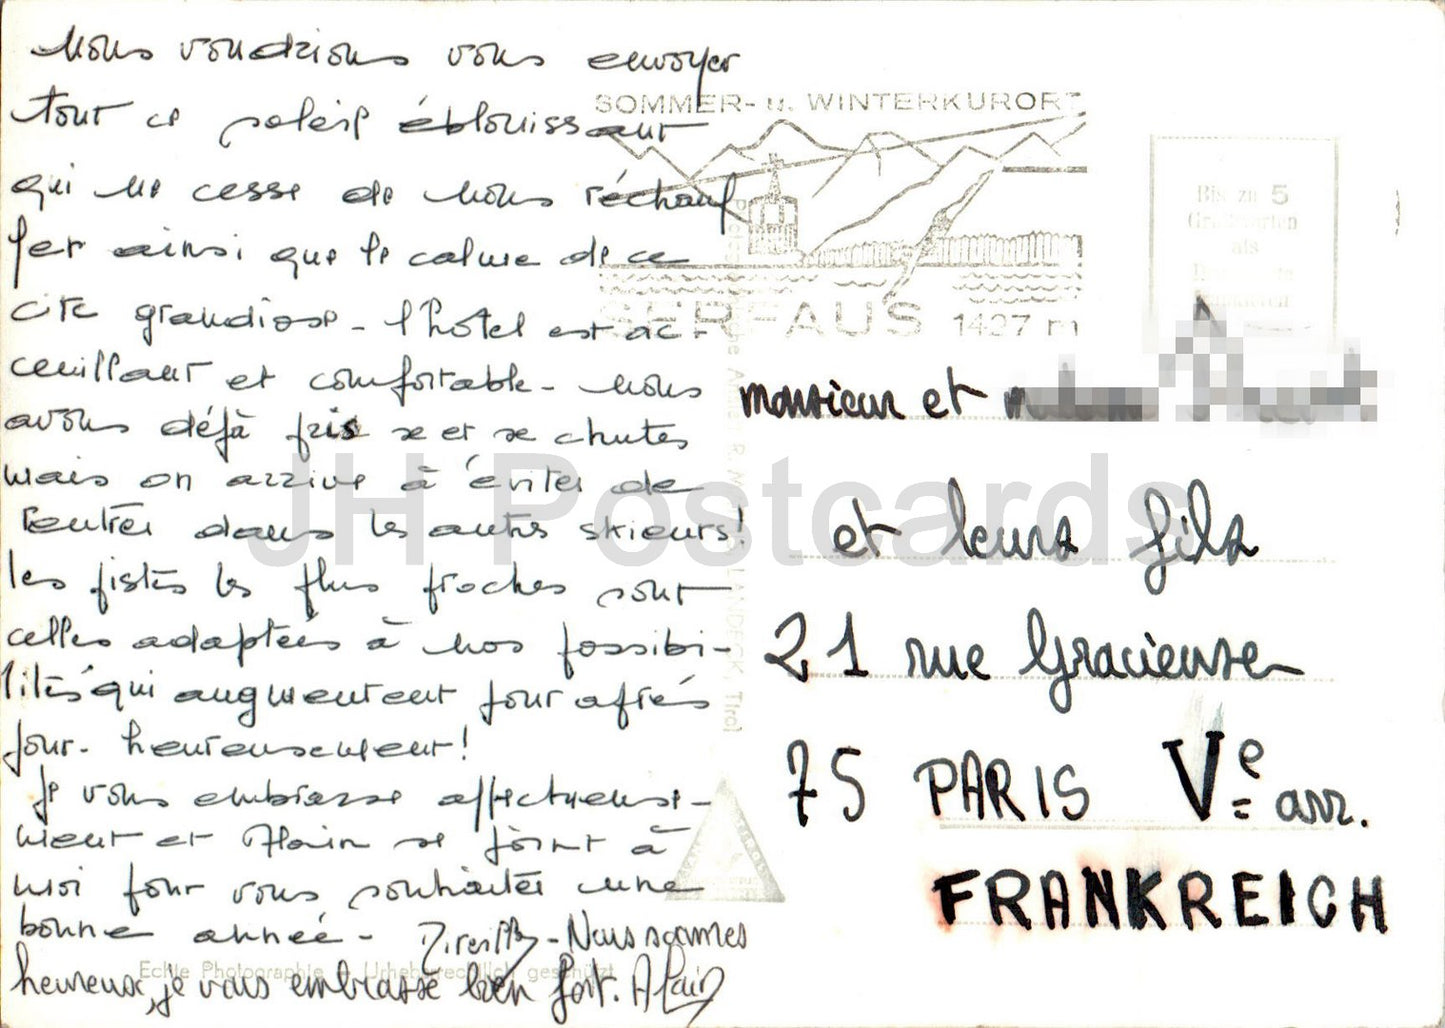 Nous voudrions vous envoyer
tout ce soleil éblouissant
qui ne cesse de nous réchauf
fer ainsi que le calme de ce
site grandiose - l'hôtel est ac-
ceuillant et confortable - nous
avons déjà pris se et se chutes
mais on arrive à éviter de
rentrer dans les autres skieurs!
les pistes les plus proches sont
celles adaptées à nos possibi-
lités qui augmentent jour après
jour - heureusement!
Je vous embrasse affectueuse-
ment et Alain se joint à
moi pour vous souhaiter une
bonne année - Mireille - Nous sommes
heureux, je vous embrasse bien fort. Alain
SOMMER- u. WINTERKURORT
SERFAUS 1427 m
Bis zu 5
Grußworten
als
monsieur et
et leurs fils
21 rue Gracieuse
75 PARIS Ve arr.
FRANKREICH
LANDECK, Tirol
Echte Photographie - Urheberrechtlich geschützt
JH Postcards